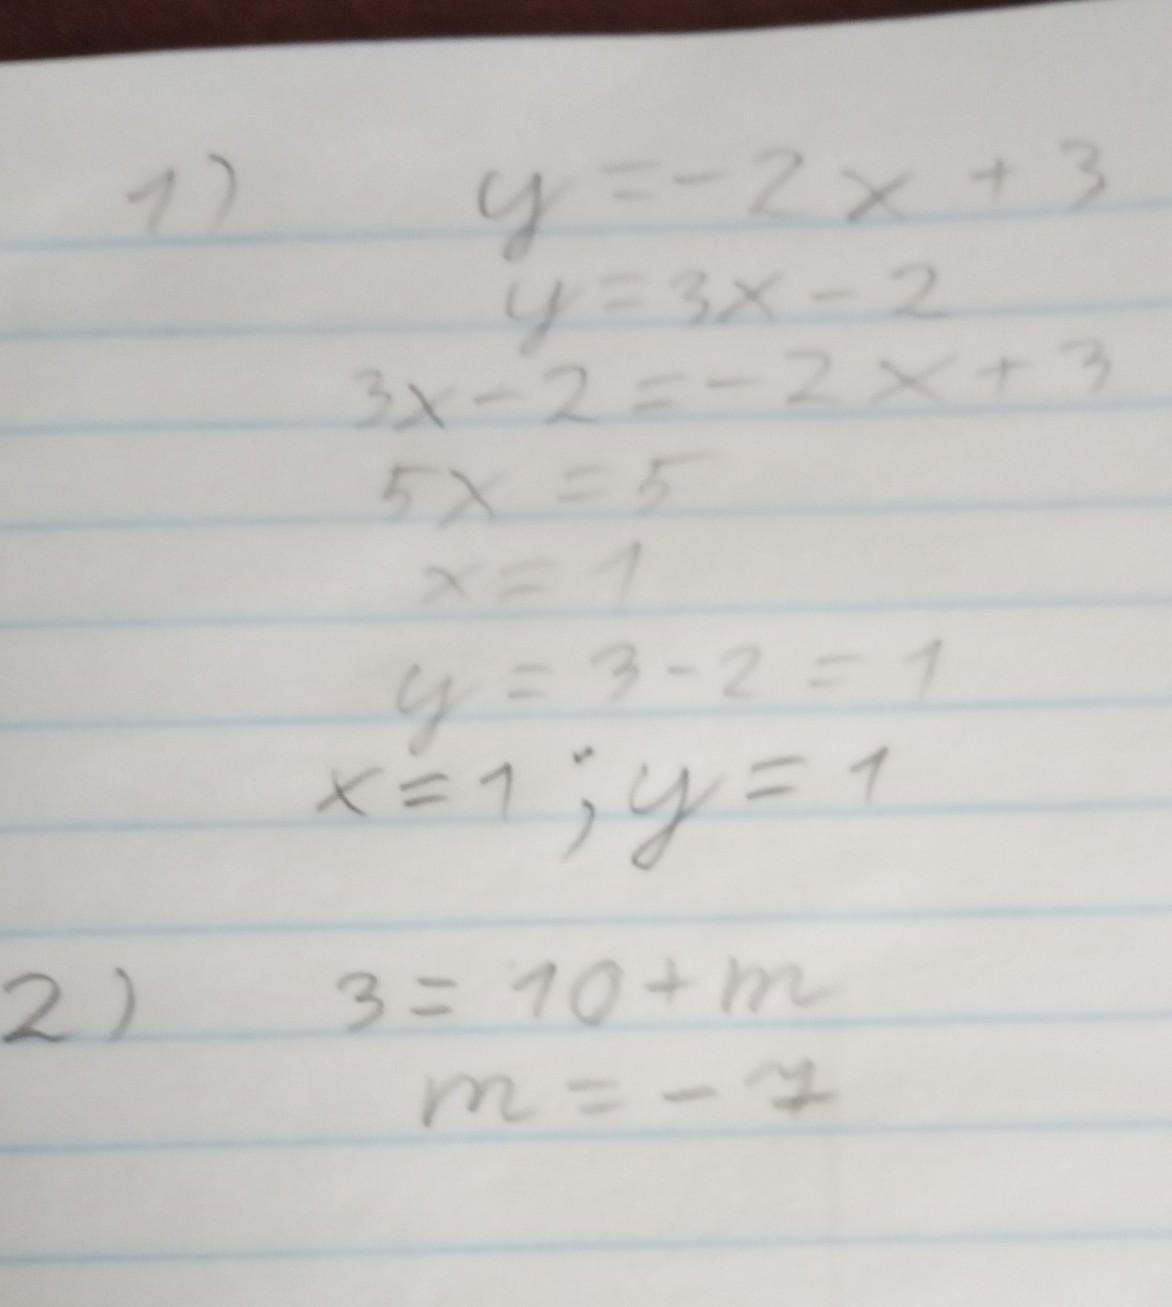 1) y = -2x + 3
y = 3x - 2
3x - 2 = -2x + 3
5x = 5
x = 1
y = 3 - 2 = 1
x = 1 ; y = 1
2) 3 = 10 + m
m = - 7